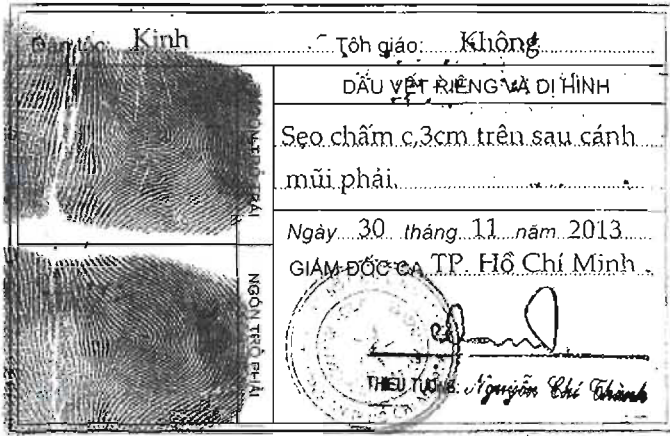 Dân tộc: Kinh Tôn giáo: Không
NGÓN TRỎ TRÁI
DẤU VẾT RIÊNG VÀ DỊ HÌNH
Sẹo chấm c,3cm trên sau cánh
mũi phải.
Ngày 30 tháng 11 năm 2013
GIÁM ĐỐC CA TP. Hồ Chí Minh
NGÓN TRỎ PHẢI
THIẾU TƯỚNG: Nguyễn Chí Thành